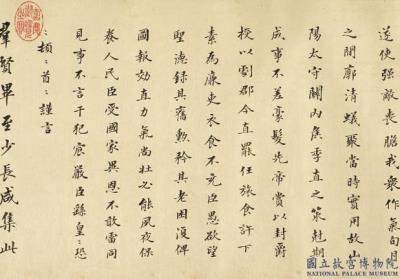 遂使強敵喪膽我眾作氣旬月
之間廓清蟻聚當時實用故山
陽太守關內侯季直之策尅期
成事不差豪髮先帝賞以封爵
授以劇郡今直罷任旅食許下
素為廉吏衣食不充臣愚欲望
聖德錄其舊勳矜其老困復俾
國報効直力氣尚壯必能夙夜保
養人民臣受國家異恩不敢雷同
見事不言干犯宸嚴臣繇皇〻恐
〻頓〻首〻謹言
羣賢畢至少長咸集此
國立故宮博物院
NATIONAL PALACE MUSEUM